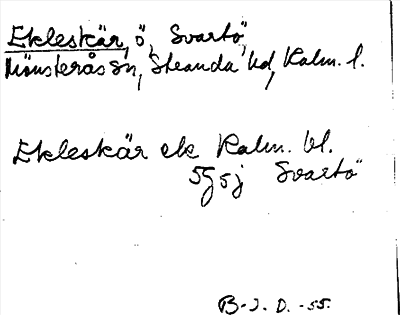 Ekleskär, ö, Svartö,
Mönsterås sn, Stranda hd, Kalm. l.
Ekleskär ek Kalm. bl.
5G5j Svartö
B-J. D. -55.